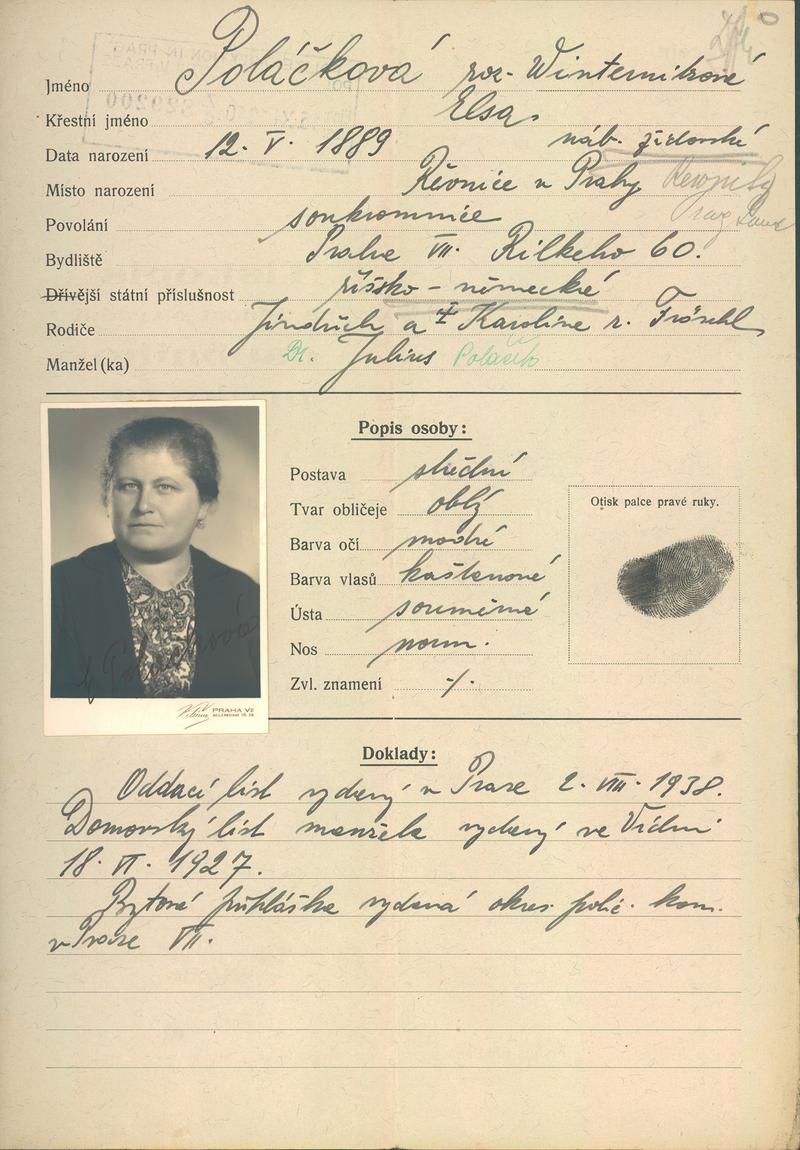 Jméno Poláčková roz. Winternitzové
Křestní jméno Elsa
Datum narození 12. V. 1889 náb. židovské
Místo narození Řevnice u Prahy
Povolání soukromnice
Bydliště Praha VII. Rilkeho 60.
Dřívější státní příslušnost říšsko-německé
Rodiče Jindřich a Karoline r. Fröschl
Manžel (ka) Dr. Julius Polaček
Popis osoby:
Postava střední
Tvar obličeje oblý
Barva očí modré
Barva vlasů kaštanové
Ústa souměrné
Nos norm.
Zvl. znamení -/-
Otisk palce pravé ruky.
E Poláčková
PRAHA VII
Doklady:
Oddací list vydaný v Praze 2. VIII. 1938.
Domovský list manžela vydaný ve Vídni
18. VI. 1927.
Bytová přihláška vydaná okres. polic. kom.
v Praze VII.